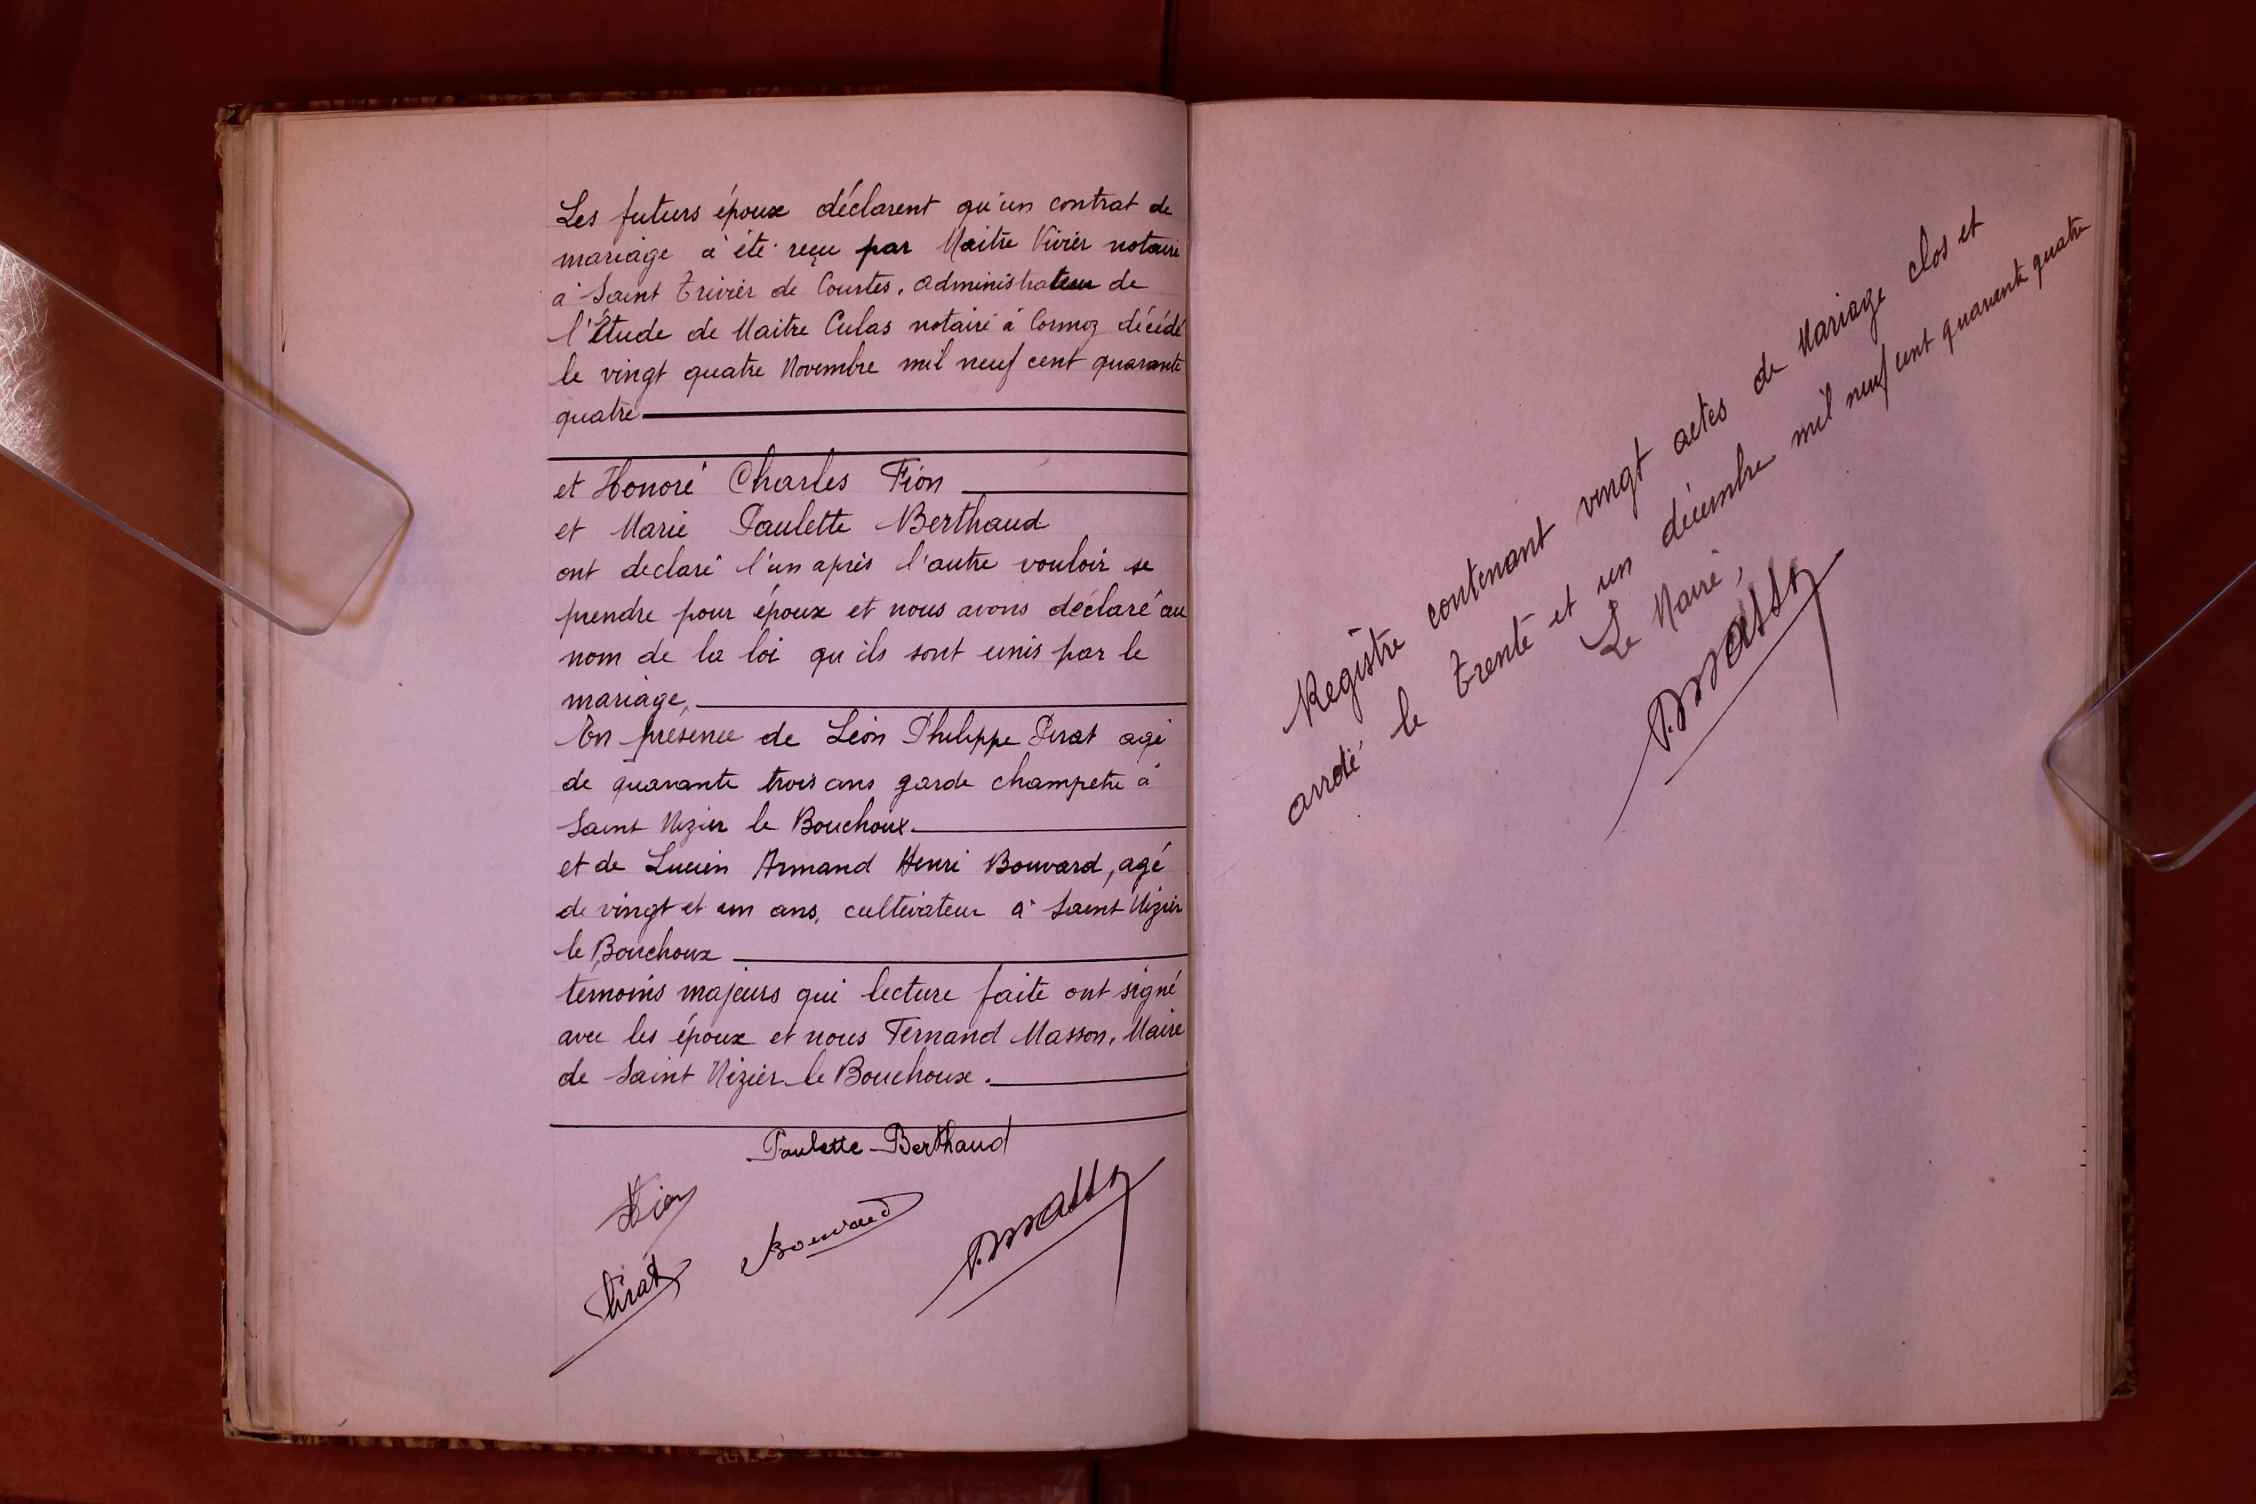 Les futurs époux déclarent qu'un contrat de
mariage a été reçu par Maitre Vivier notaire
à Saint Trivier de Courtes, administrateur de
l'Étude de Maitre Culas notaire à Cormoz décédé
le vingt quatre Novembre mil neuf cent quarante
quatre
et Honoré Charles Fion
et Marie Paulette Berthaud
ont déclaré l'un après l'autre vouloir se
prendre pour époux et nous avons déclaré au
nom de la loi qu'ils sont unis par le
mariage.
En présence de Léon Philippe Pirat agé
de quarante trois ans garde champetre à
Saint Nizier le Bouchoux.
et de Lucien Armand Henri Bouvard, agé
de vingt et un ans, cultivateur à Saint Nizier
le Bouchoux
temoins majeurs qui lecture faite ont signé
avec les époux et nous Fernand Masson, Maire
de Saint Nizier le Bouchoux.
Paulette Berthaud
Fion
Bouvard
Pirat
F. Masson
Registre contenant vingt actes de Mariage clos et
arrêté le trente et un décembre mil neuf cent quarante quatre
Le Maire,
F. Masson